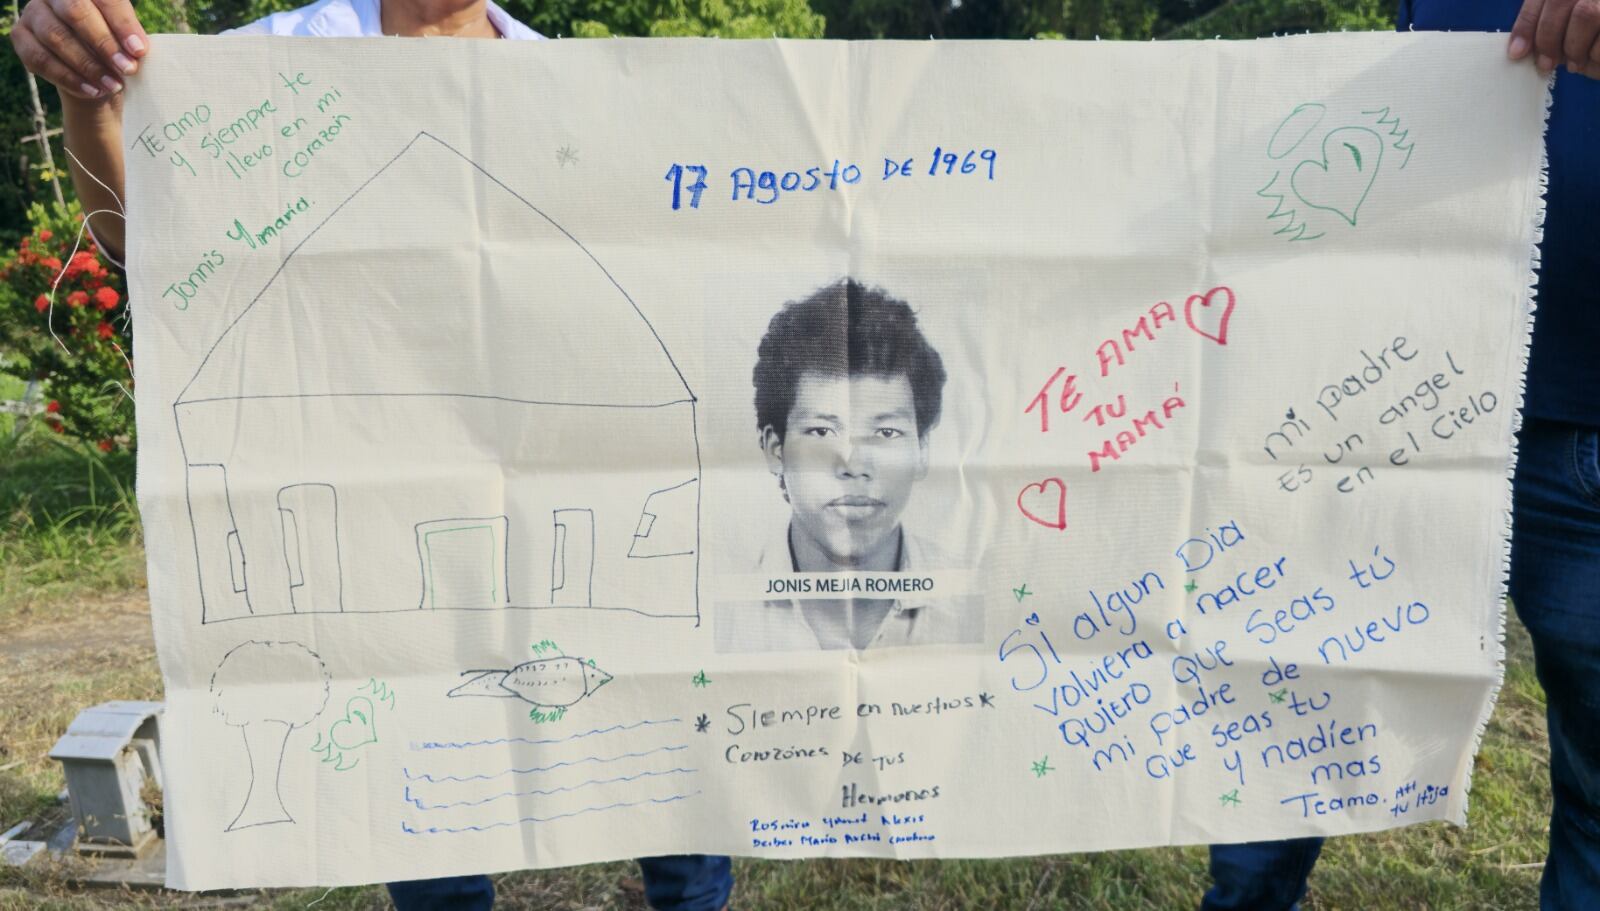 TE amo
y siempre te
llevo en mi
corazón
Jonnis y maria.
17 Agosto DE 1969
TE AMA
TU
MAMÁ
mi padre
Es un angel
en el Cielo
JONIS MEJIA ROMERO
Si algun Dia
volviera a nacer
Quiero que seas tú
mi padre de nuevo
que seas tu
y nadien
mas
Teamo. Att
tu Hija
Siempre en nuestros
Corazónes DE tus
Hermanos
Alexis
Deiber Mario